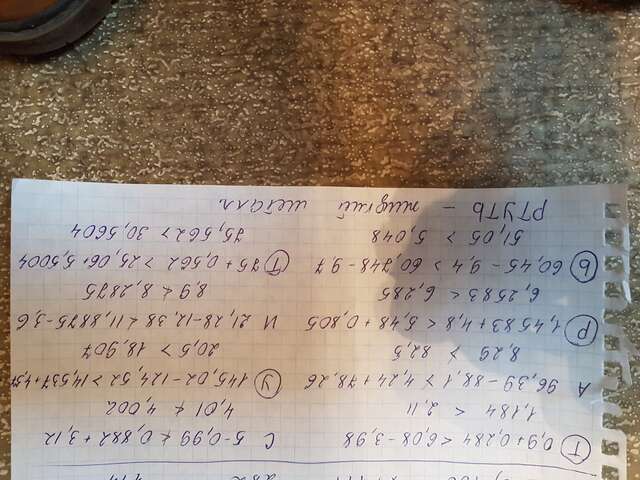 Т 0,9+0,284 < 6,08-3,98
1,184 < 2,11
А 96,39-88,1 > 4,24+78,26
8,29 > 82,5
Р 1,4583+4,8 < 5,48+0,805
6,2583 < 6,285
Ь 60,45-9,4 > 60,748-9,7
51,05 > 5,048
С 5-0,99 < 0,882+3,12
4,01 < 4,002
У 145,02-124,52 > 14,537+4,37
20,5 > 18,907
И 21,28-12,38 < 11,8875-3,6
8,9 < 8,2875
Т 75+0,562 > 25,06+5,5004
75,562 > 30,5604
РТУТЬ – жидкий металл.